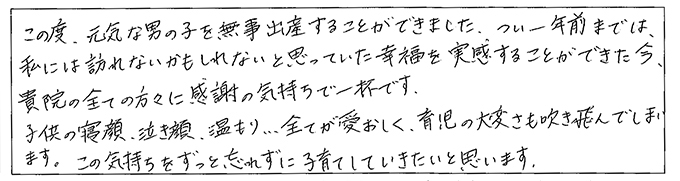 この度、元気な男の子を無事出産することができました。つい一年前までは、
私には訪れないかもしれないと思っていた幸福を実感することができた今、
貴院の全ての方々に感謝の気持ちで一杯です。
子供の寝顔、泣き顔、温もり...全てが愛おしく、育児の大変さも吹き飛んでしまい
ます。この気持ちをずっと忘れずに子育てしていきたいと思います。